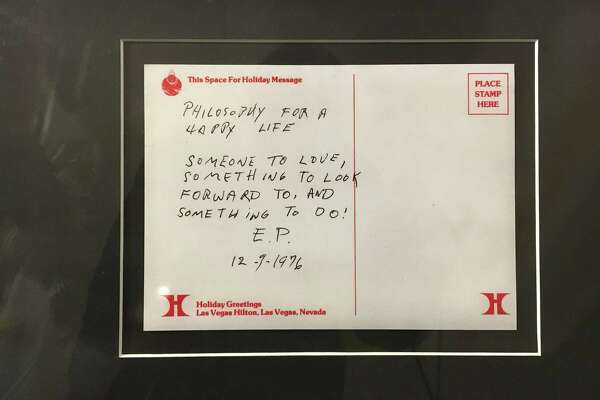 This Space For Holiday Message
PLACE
STAMP
HERE
PHILOSOPHY FOR A
HAPPY LIFE
SOMEONE TO LOVE,
SOMETHING TO LOOK
FORWARD TO, AND
SOMETHING TO DO!
E.P.
12-9-1976
H Holiday Greetings
Las Vegas Hilton, Las Vegas, Nevada
H